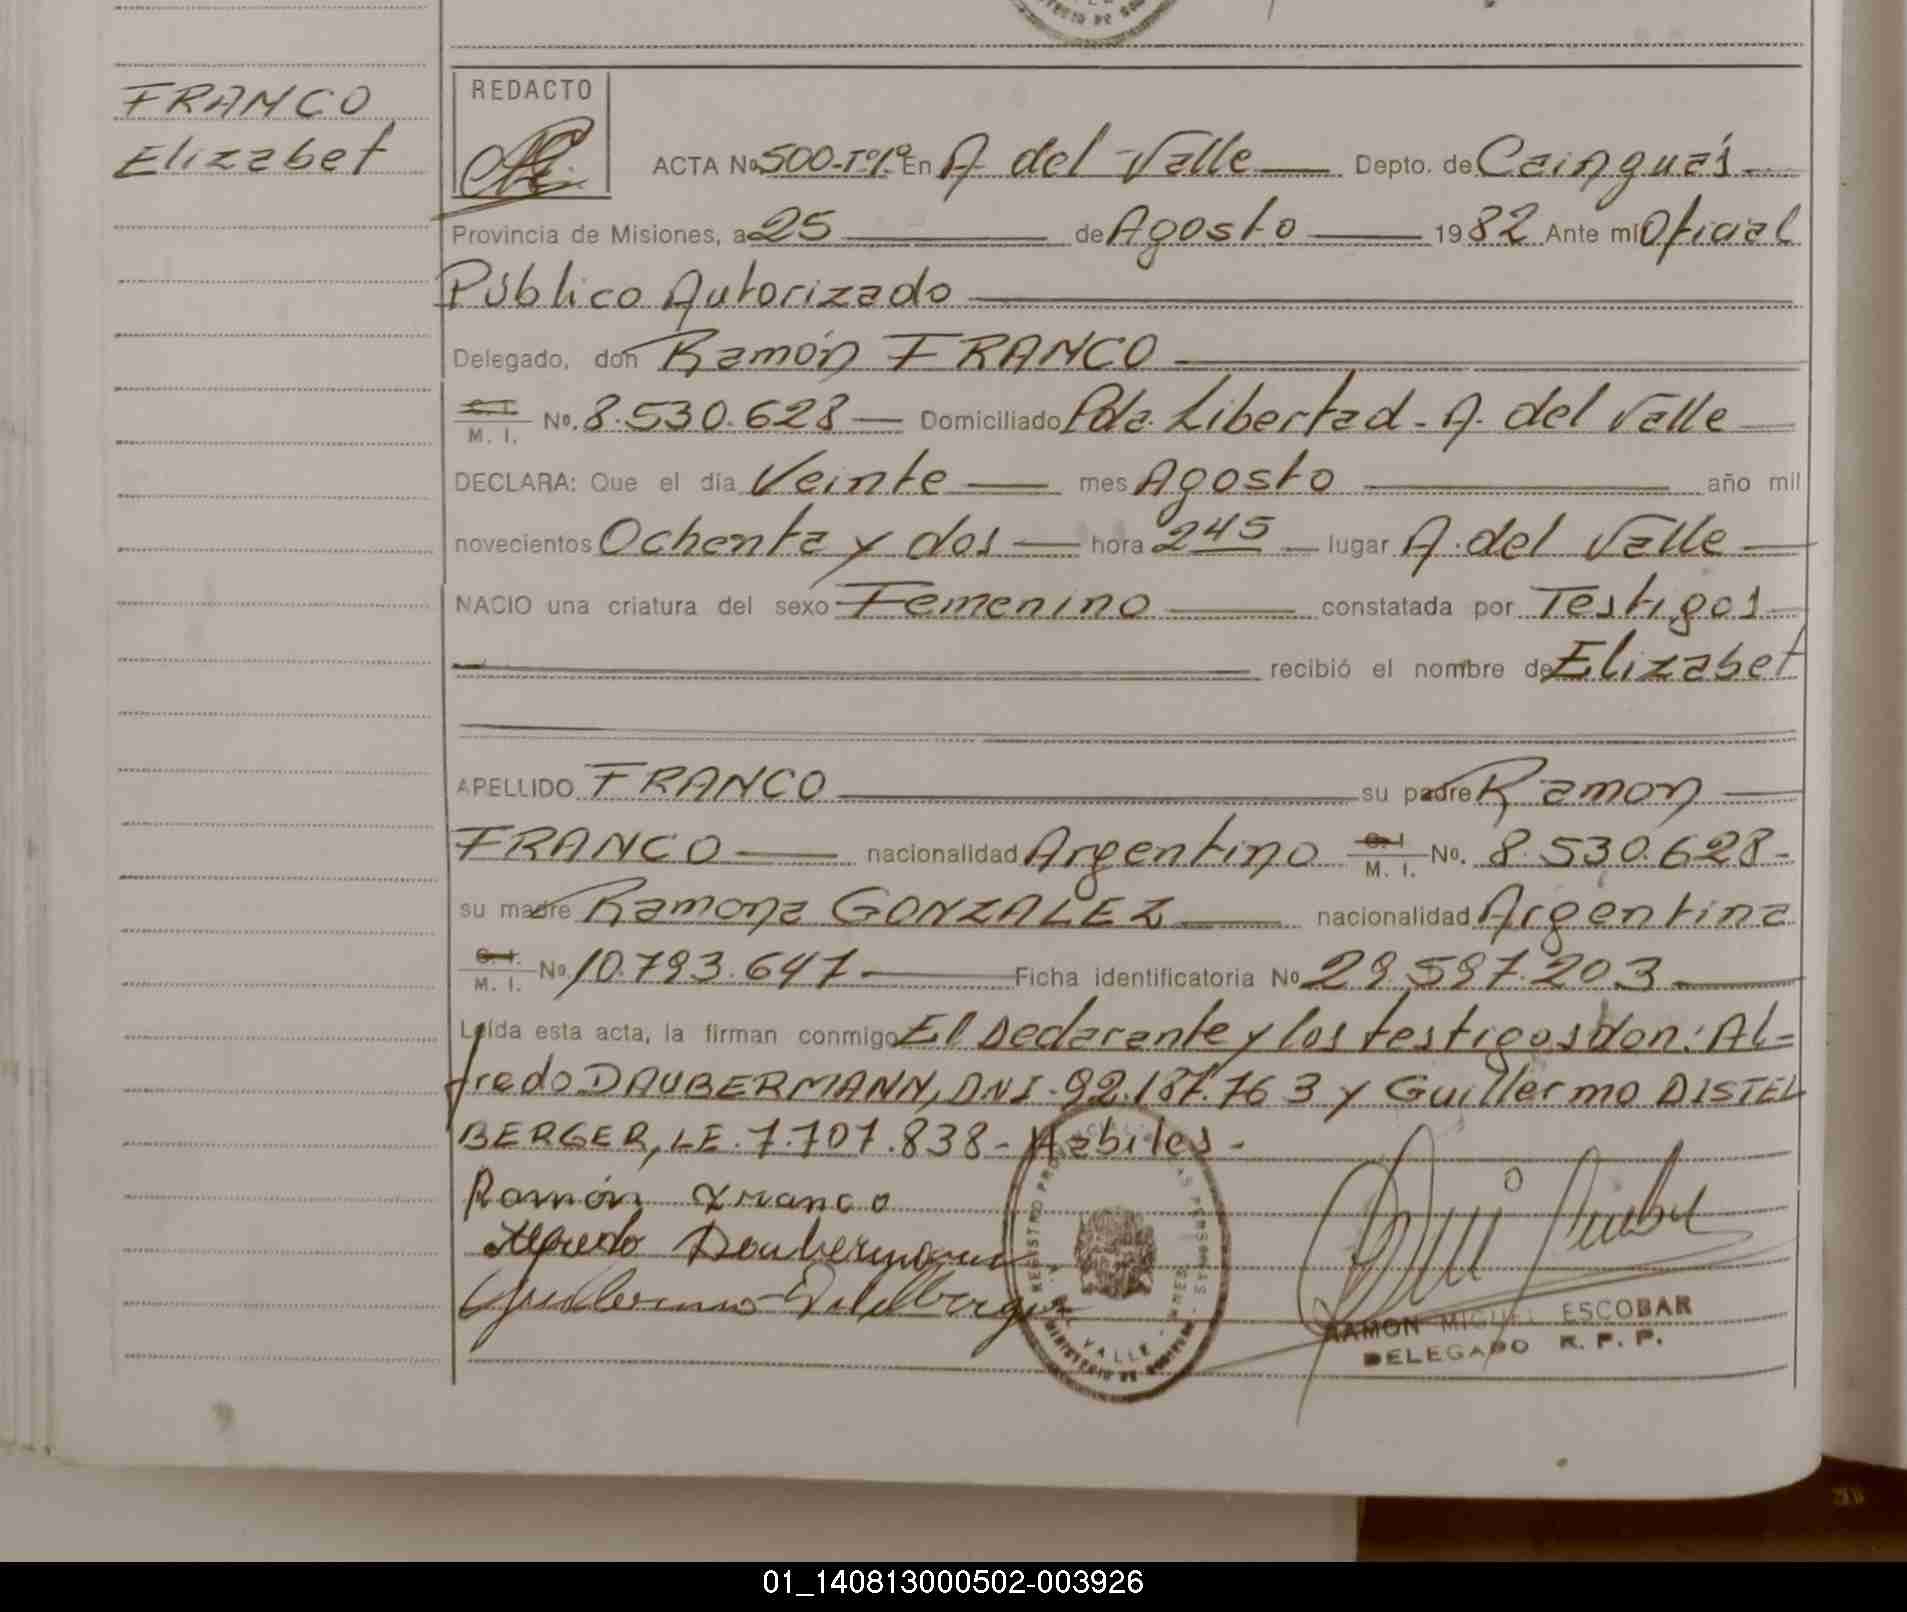 FRANCO
Elizabet
REDACTO
ACTA No. 500-Tº1º En A. del Valle Depto. de Cainguás
Provincia de Misiones, a 25 de Agosto 1982 Ante mi Oficial
Público Autorizado
Delegado, don Ramón FRANCO
C. I.
M. I. No. 8.530.628 Domiciliado Pda. Libertad - A. del Valle
DECLARA: Que el día Veinte mes Agosto año mil
novecientos Ochenta y dos hora 2 45 lugar A. del Valle
NACIO una criatura del sexo Femenino constatada por Testigos
recibió el nombre de Elizabet
APELLIDO FRANCO su padre Ramon
FRANCO nacionalidad Argentino C. I.
M. I. No. 8.530.628-
su madre Ramona GONZALEZ nacionalidad Argentina
C. I.
M. I. No. 10.793.647 Ficha identificatoria No 29.597.203
Leída esta acta, la firman conmigo El Declarante y los testigos don: Al-
fredo DAUBERMANN, DNI-92.187.763 y Guillermo DISTEL
BERGER, LE.7.707.838- Habiles-
Ramón Franco
Alfredo Daubermann
Guillermo Distelberger
REGISTRO PROVINCIAL DE LAS PERSONAS
A. DEL VALLE - MNES.
MINISTERIO DE GOBIERNO
RAMON MIGUEL ESCOBAR
DELEGADO R. P. P.
01_140813000502-003926